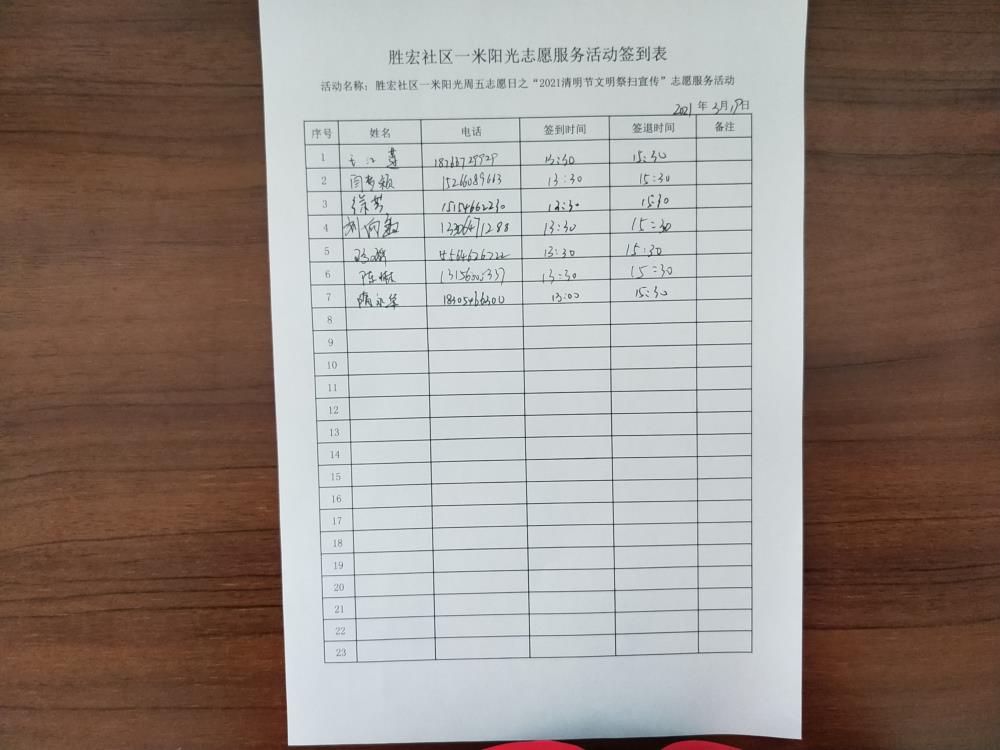 胜宏社区一米阳光志愿服务活动签到表
活动名称：胜宏社区一米阳光周五志愿日之“2021清明节文明祭扫宣传”志愿服务活动
2021 年 3月19日
序号 姓名 电话 签到时间 签退时间 备注
1 13:30 15:30
2 闫梦颖 15266089663 13:30 15:30
3 徐芳 15154662230 13:30 15:30
4 13306471288 13:30 15:30
5 13:30 15:30
6 陈 13:30 15:30
7 隋永华 18305466300 13:00 15:30
8
9
10
11
12
13
14
15
16
17
18
19
20
21
22
23